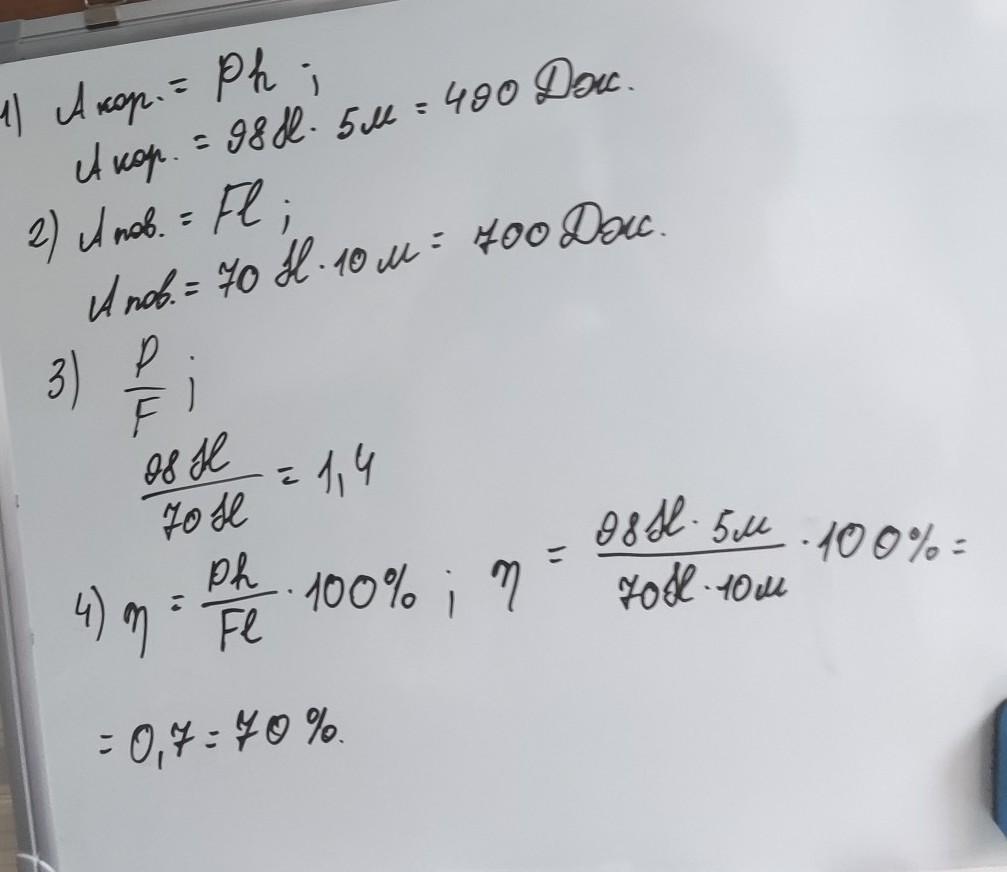 1) A кор. = Ph ;
A кор. = 98 Н · 5 м = 490 Дж.
2) A пов. = Fl ;
A пов. = 70 Н · 10 м = 700 Дж.
3) P/F ;
98 Н / 70 Н = 1,4
4) η = Ph/Fl · 100% ; η = 98 Н · 5 м / 70 Н · 10 м · 100% =
= 0,7 = 70 %.